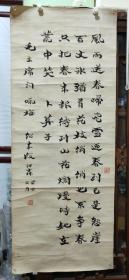 風雨送春歸飛雪迎春到已是懸崖
百丈冰猶有花枝俏俏也不爭春
只把春來報待到山花爛漫時她在
叢中笑 卜算子
毛主席詞 詠梅